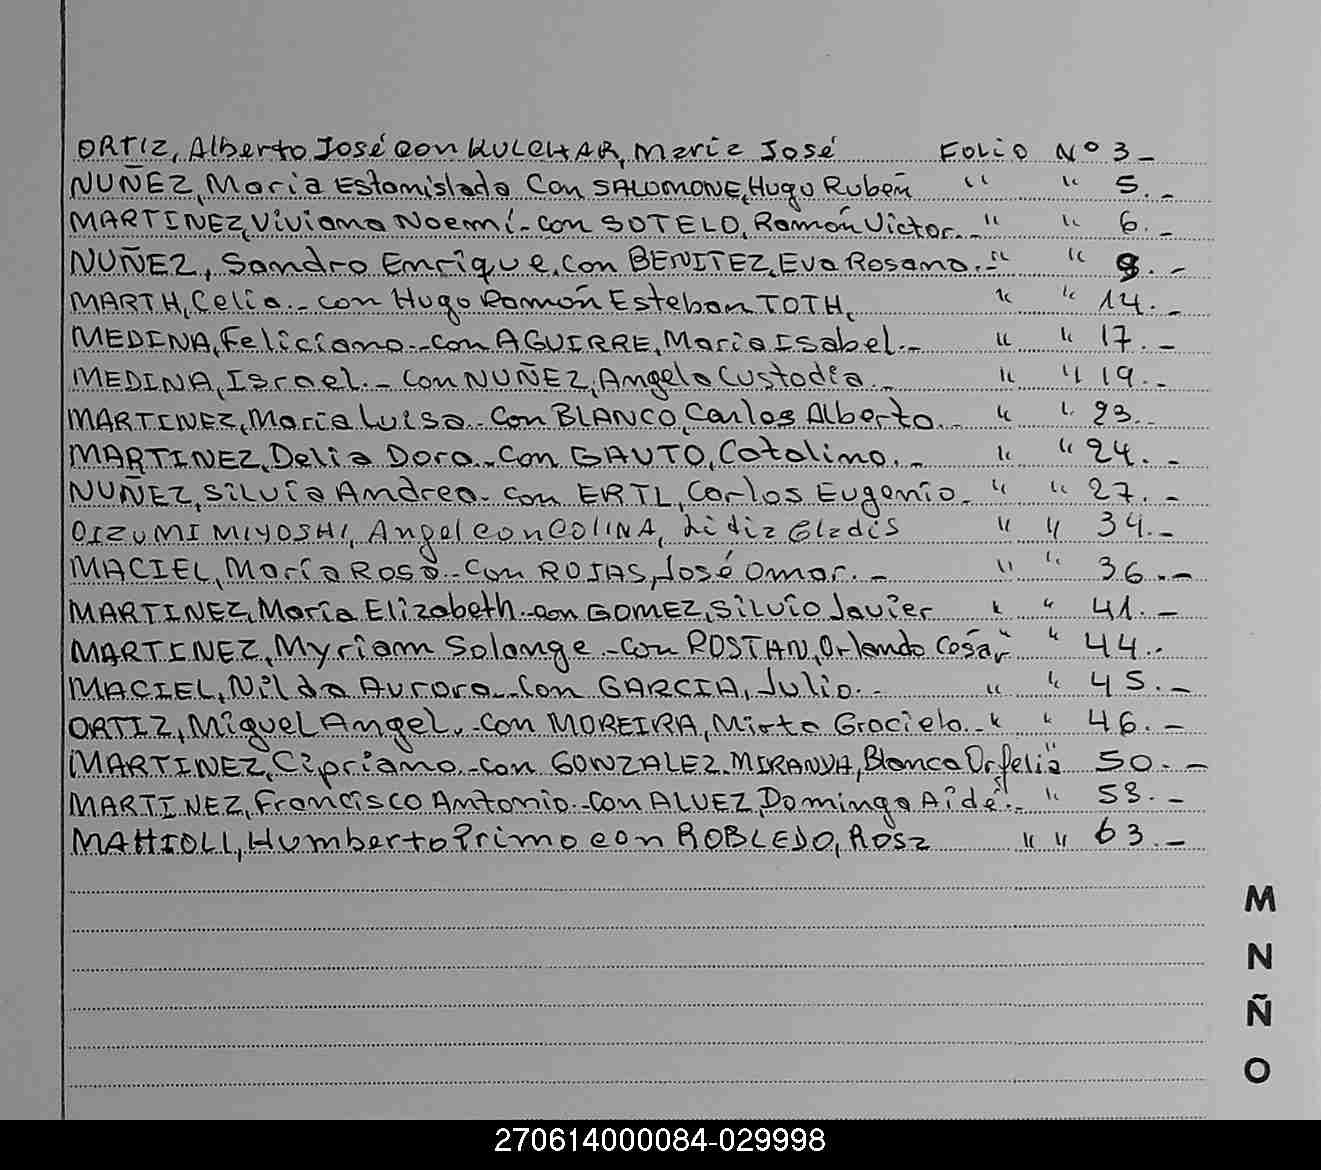 ORTIZ, Alberto José con KULCHAR, Maria José Folio Nº 3_
NUÑEZ, Maria Estanislada Con SALOMONE, Hugo Rubén " " 5._
MARTINEZ, Viviana Noemí._ con SOTELO, Ramón Victor._ " " 6._
NUÑEZ, Sandro Enrique, con BENITEZ, Eva Rosana._ " " 9._
MARTH, Celia._ con Hugo Ramón Esteban TOTH, " " 14._
MEDINA, Feliciano._ con AGUIRRE, Maria Isabel._ " " 17._
MEDINA, Israel._ con NUÑEZ, Angela Custodia._ " " 19._
MARTINEZ, Maria Luisa._ Con BLANCO, Carlos Alberto._ " " 23._
MARTINEZ, Delia Dora._ Con GAUTO, Catalino._ " " 24._
NUÑEZ, Silvia Andrea._ con ERTL, Carlos Eugenio._ " " 27._
OIZUMI MIYOSHI, Angel con COLINA, Lidia Gladis " " 34._
MACIEL, María Rosa._ Con ROJAS, José Omar._ " " 36._
MARTINEZ, María Elizabeth._ con GOMEZ, Silvio Javier " " 41._
MARTINEZ, Myriam Solange._ con ROSTAN, Orlando Cesar " " 44._
MACIEL, Nilda Aurora._ Con GARCIA, Julio._ " " 45._
ORTIZ, Miguel Angel._ con MOREIRA, Mirta Graciela._ " " 46._
MARTINEZ, Cipriano._ con GONZALEZ MIRANDA, Blanca Orfelia " 50._
MARTINEZ, Francisco Antonio._ Con ALVEZ, Dominga Aidé._ " " 53._
MATTIOLI, Humberto Primo con ROBLEDO, Rosa " " 63._
M
N
Ñ
O
270614000084-029998